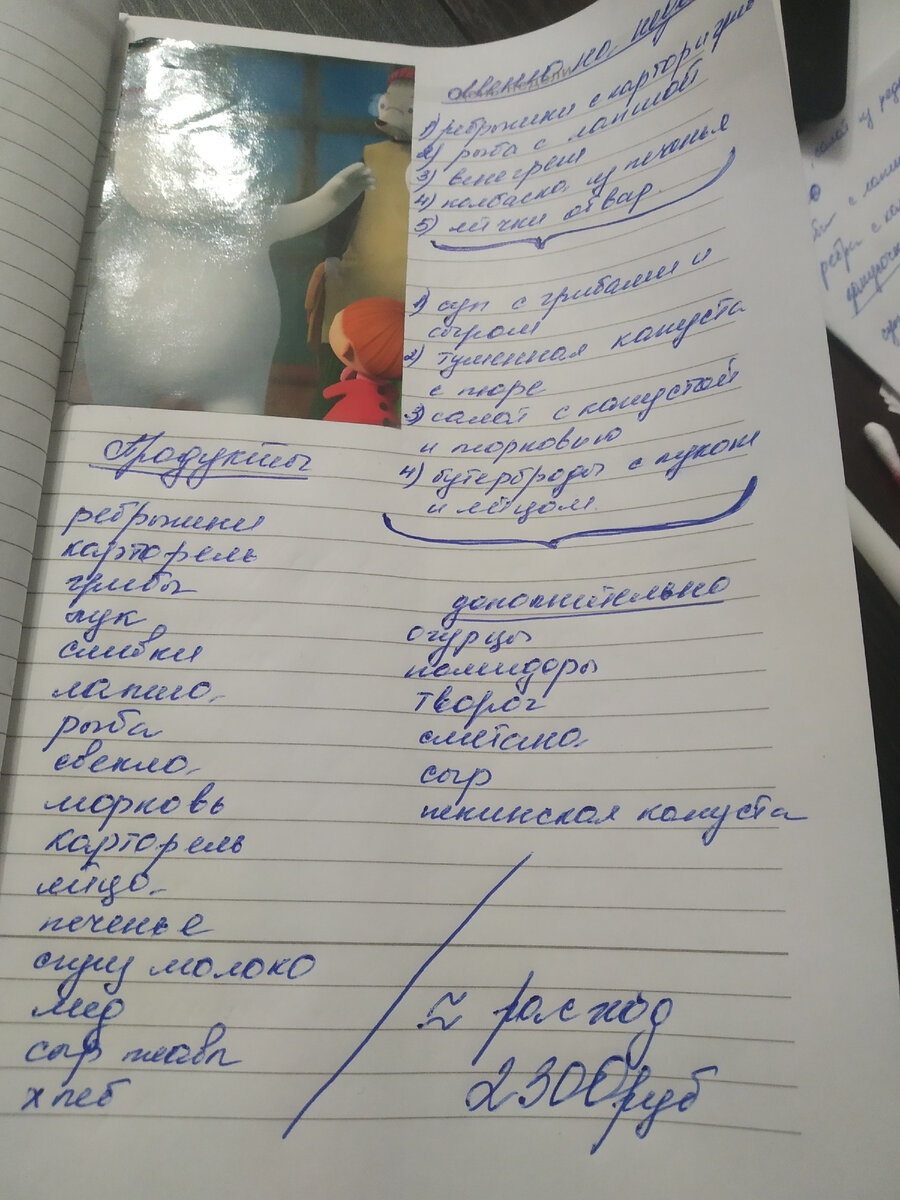 на неде
1) ребрышки с картоф и гриб
2) рыба с лапшой
3) венегрет
4) колбаска из печенья
5) яички отвар.
1) суп с грибами и
сыром
2) тушенная капуста
с пюре
3) салат с капустой
и морковью
4) бутерброды с луком
и яйцом.
Продукты
ребрышки
картофель
грибы
лук
сливки
лапша
рыба
свекла
морковь
картофель
яйцо
печенье
сгущ молоко
мед
сыр плавл
хлеб
дополнительно
огурцы
помидоры
творог
сметана
сыр
пекинская капуста
≈ расход
2300 руб